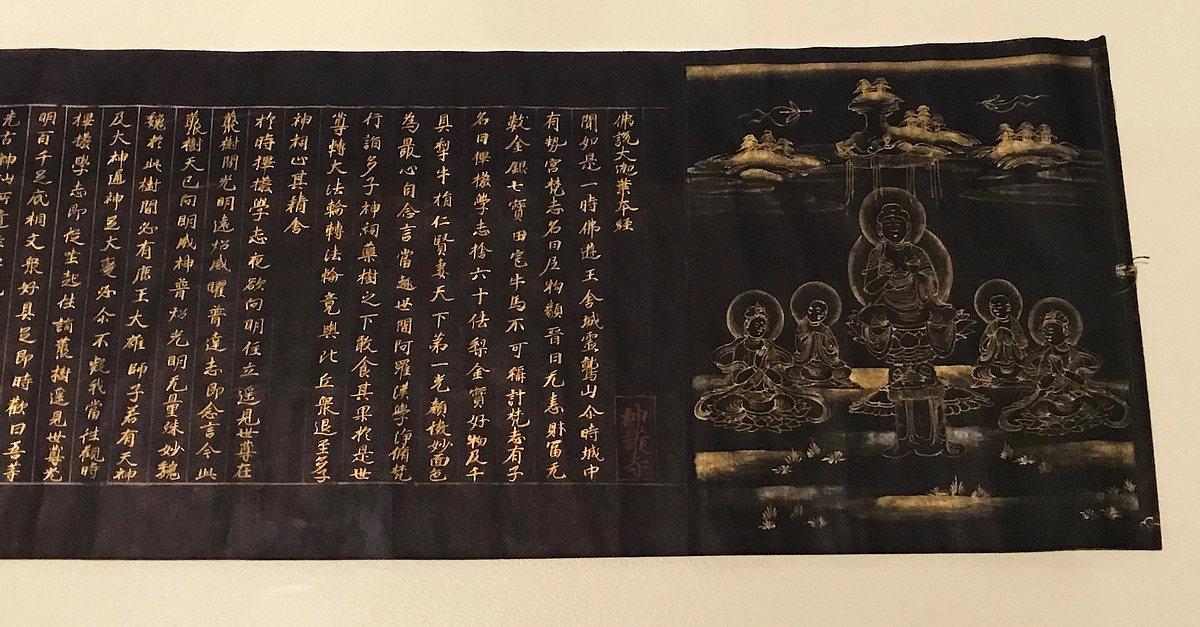 佛說大迦葉本經
神護寺
聞如是一時佛遊王舍城霊鷲山尒時城中
有勢富梵志名曰尼拘類晋曰无恚財富无
數金銀七寶田宅牛馬不可稱計梵志有子
名曰樣學志捨六十佉梨金寶好物及千
具犁牛捐仁賢妻天下第一光顏俊妙面色
為最心自念言當趣世間阿羅漢學淨脩梵
行詣多子神祠藥樹之下敢食其果於是世
尊轉大法輪轉法輪竟與比丘衆退至多子
神祠止其精舍
於時樣學志夜欲向明住立遥見世尊在
叢樹間光明遠炤威曜普達志即念言今此
叢樹天已向明威神普炤光明无量殊妙巍
巍於此樹間必有應王大雄師子若有天神
及大神通神足大變弥今不疑我當往觀時
樣學志即從坐起往詣叢樹遥見世尊光
明百千足底相文衆好具足即時歡曰吾等
先古神仙所